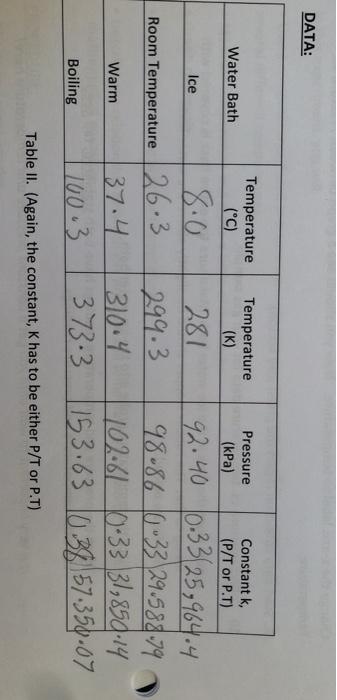 DATA:
Water Bath Temperature (°C) Temperature (K) Pressure (kPa) Constant k, (P/T or P.T)
Ice 8.0 281 92.40 0.33 25,964.4
Room Temperature 26.3 299.3 98.86 0.33 29.588.79
Warm 37.4 310.4 102.61 0.33 31,850.14
Boiling 100.3 373.3 153.63 57.350.07
Table II. (Again, the constant, K has to be either P/T or P.T)